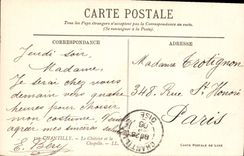 CARTE POSTALE
Tous les Pays étrangers n'acceptent pas la Correspondance au recto.
(Se renseigner à la Poste)
CORRESPONDANCE
ADRESSE
Jeudi soir
Madame
Je serai chez vous
demain vers quatre
heures pour choisir
mon costume.
agréer mes sincères
Madame Crotignon
348. Rue St Honoré
Paris
CHANTILLY. — Le Château et la
Chapelle. — LL.
CHANTILLY
OISE
Carte Postale de Luxe